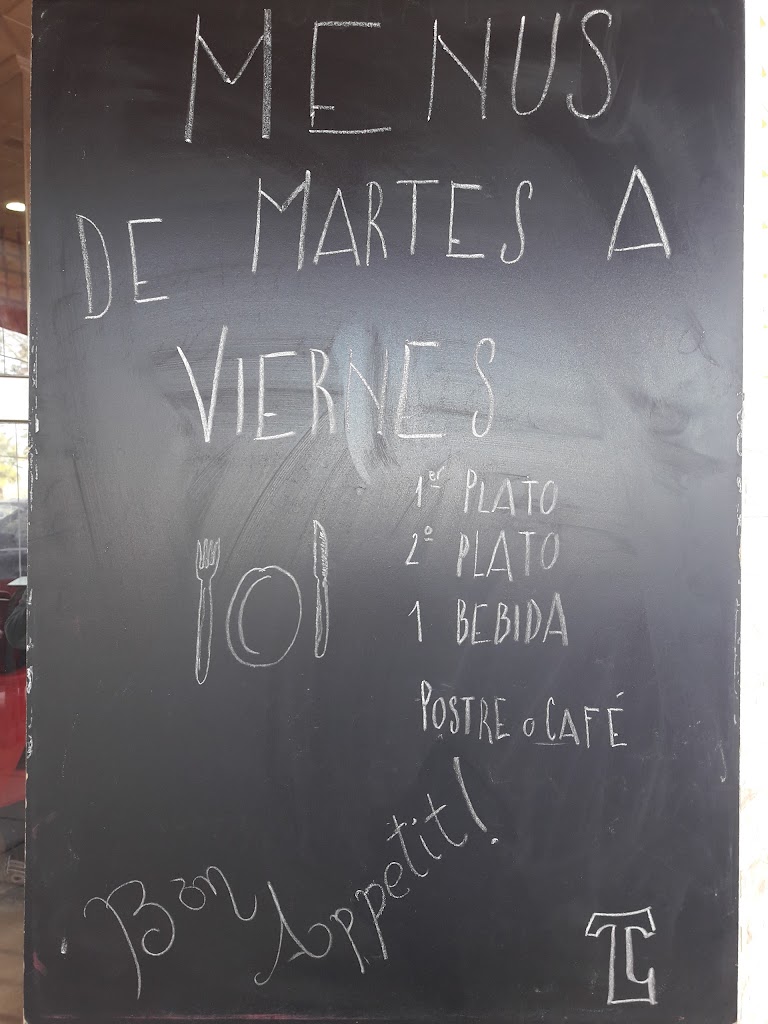 MENUS
DE MARTES A
VIERNES
1er PLATO
2º PLATO
1 BEBIDA
POSTRE o CAFÉ
Bon Appetit!